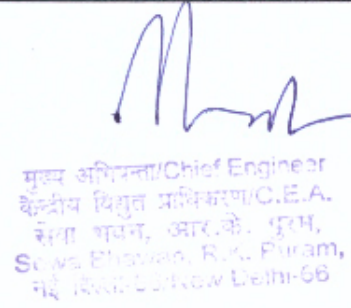 मुख्य अभियन्ता/Chief Engineer
केन्द्रीय विद्युत प्राधिकरण/C.E.A.
सेवा भवन, आर.के. पुरम,
Sewa Bhawan, R.K. Puram,
नई दिल्ली-66/New Delhi-66